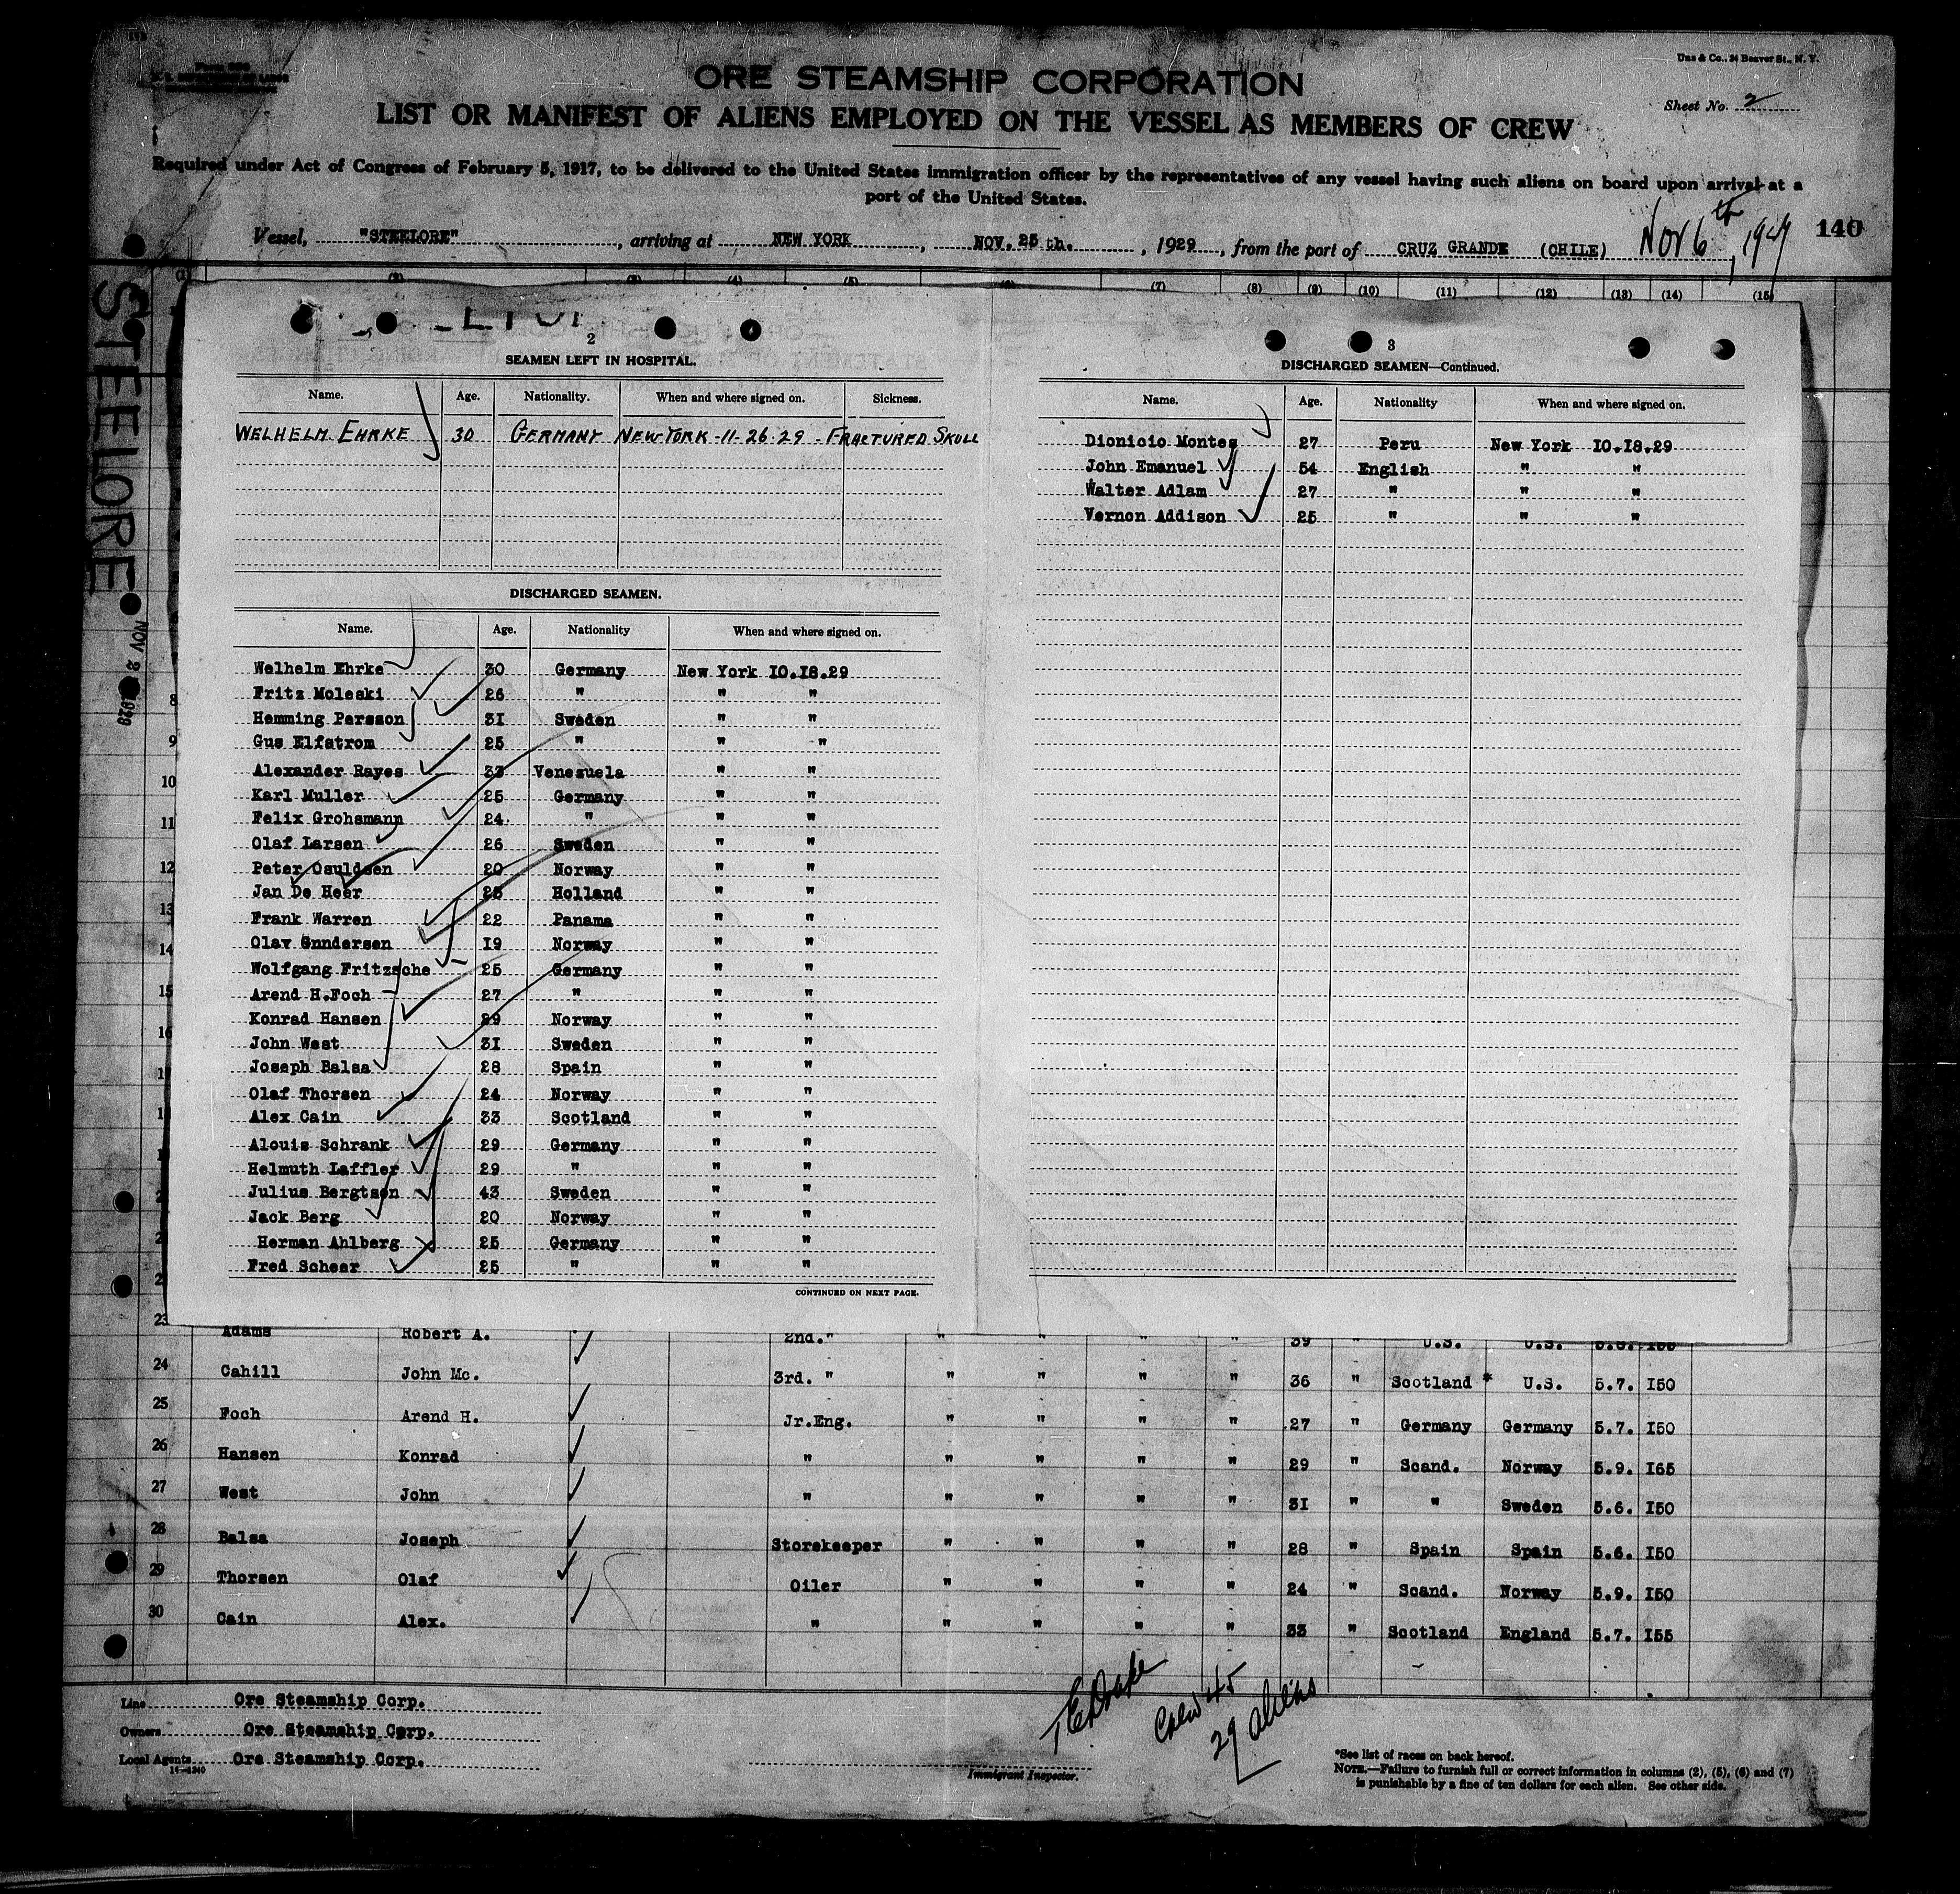 Uns & Co., 24 Beaver St., N. Y.
ORE STEAMSHIP CORPORATION
Sheet No. 2
LIST OR MANIFEST OF ALIENS EMPLOYED ON THE VESSEL AS MEMBERS OF CREW
Required under Act of Congress of February 5, 1917, to be delivered to the United States immigration officer by the representatives of any vessel having such aliens on board upon arrival at a
port of the United States.
Vessel, "STEELORE", arriving at NEW YORK, NOV. 25 th., 1929, from the port of CRUZ GRANDE (CHILE) Nov 6th, 1929 140
(2) (3) (4) (5) (6) (7) (8) (9) (10) (11) (12) (13) (14) (15)
STEELORE
2
SEAMEN LEFT IN HOSPITAL.
Name. Age. Nationality. When and where signed on. Sickness.
WELHELM EHRKE 30 GERMANY NEW YORK -11-26-29 - FRACTURED SKULL
DISCHARGED SEAMEN.
Name. Age. Nationality When and where signed on.
Welhelm Ehrke 30 Germany New York 10.18.29
Fritz Moleski 26 " " "
Hemming Persson 31 Sweden " "
Gus Elfstrom 25 " " "
Alexander Rayes 33 Venezuela " "
Karl Muller 25 Germany " "
Felix Grohsmann 24 " " "
Olaf Larsen 26 Sweden " "
Peter Osuldsen 20 Norway " "
Jan De Heer 25 Holland " "
Frank Warren 22 Panama " "
Olav Gnndersen 19 Norway " "
Wolfgang Fritzsche 25 Germany " "
Arend H.Foch 27 " " "
Konrad Hansen 29 Norway " "
John West 31 Sweden " "
Joseph Balsa 28 Spain " "
Olaf Thorsen 24 Norway " "
Alex Cain 33 Scotland " "
Alouis Schrank 29 Germany " "
Helmuth Laffler 29 " " "
Julius Bergtsen 43 Sweden " "
Jack Berg 20 Norway " "
Herman Ahlberg 25 Germany " "
Fred Scheer 25 " " "
CONTINUED ON NEXT PAGE.
3
DISCHARGED SEAMEN—Continued.
Name. Age. Nationality When and where signed on.
Dionicio Montes 27 Peru New York 10.18.29
John Emanuel 54 English " "
Walter Adlam 27 " " "
Vernon Addison 25 " " "
8
9
10
11
12
13
14
15
16
23 Adams Robert A. 2nd." " " " " 39 " U.S. U.S.
24 Cahill John Mc. 3rd. " " " " " 36 " Scotland * U.S. 5.7. 150
25 Foch Arend H. Jr.Eng. " " " " 27 " Germany Germany 5.7. 150
26 Hansen Konrad " " " " " 29 " Scand. Norway 5.9. 165
27 West John " " " " " 31 " " Sweden 5.6. 150
28 Balsa Joseph Storekeeper " " " " 28 " Spain Spain 5.6. 150
29 Thorsen Olaf Oiler " " " " 24 " Scand. Norway 5.9. 150
30 Cain Alex. " " " " " 33 " Scotland England 5.7. 155
Crew 45
29 aliens
Line Ore Steamship Corp.
Owners Ore Steamship Corp.
Local Agents Ore Steamship Corp.
Immigrant Inspector.
*See list of races on back hereof.
NOTE.—Failure to furnish full or correct information in columns (2), (5), (6) and (7)
is punishable by a fine of ten dollars for each alien. See other side.